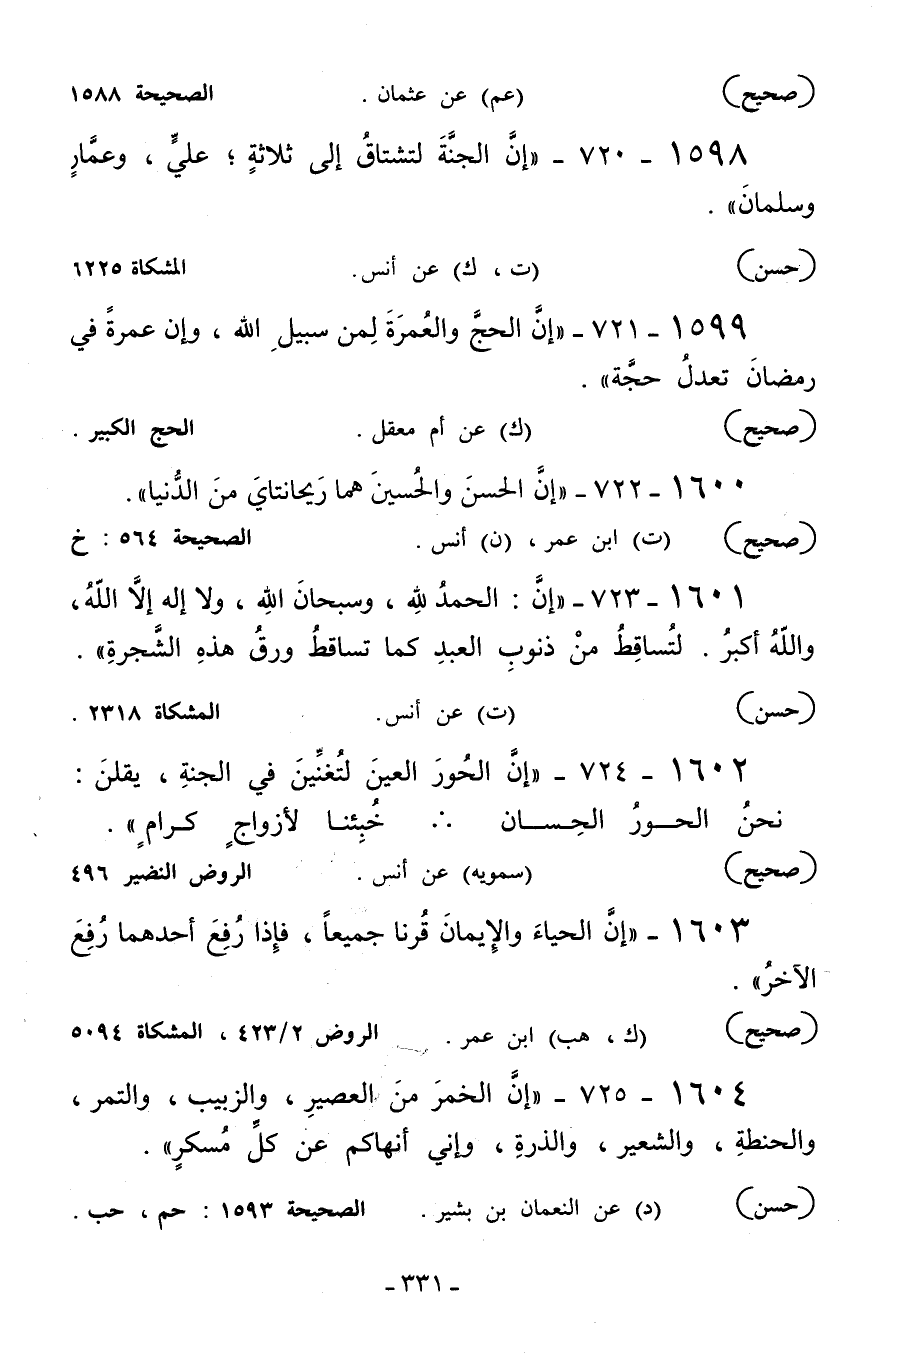 (صحيح) (عم) عن عثمان . الصحيحة ١٥٨٨
١٥٩٨ ـ ٧٢٠ ـ «إنَّ الجنَّةَ لتشتاقُ إلى ثلاثةٍ ؛ عليٍّ ، وعمَّارٍ
وسلمانَ» .
(حسن) (ت ، ك) عن أنس. المشكاة ٦٢٢٥
١٥٩٩ ـ ٧٢١ ـ «إنَّ الحجَّ والعُمرَةَ لِمن سبيلِ الله ، وإن عمرةً في
رمضانَ تعدلُ حجَّة» .
(صحيح) (ك) عن أم معقل . الحج الكبير .
١٦٠٠ ـ ٧٢٢ ـ «إنَّ الحسنَ والحُسينَ هما رَيحانتايَ منَ الدُّنيا».
(صحيح) (ت) ابن عمر ، (ن) أنس . الصحيحة ٥٦٤ : خ
١٦٠١ ـ ٧٢٣ ـ «إنَّ : الحمدُ للهِ ، وسبحانَ اللهِ ، ولا إله إلَّا اللّهُ ،
واللّهُ أكبرُ . لتُساقِطُ منْ ذنوبِ العبدِ كما تساقطُ ورقُ هذهِ الشَّجرةِ» .
(حسن) (ت) عن أنس. المشكاة ٢٣١٨ .
١٦٠٢ ـ ٧٢٤ ـ «إنَّ الحُورَ العينَ لتُغنِّينَ في الجنةِ ، يقلنَ :
نحنُ الحـورُ الحِسـان ∴ خُبِئنـا لأزواجٍ كـرامٍ» .
(صحيح) (سمويه) عن أنس . الروض النضير ٤٩٦
١٦٠٣ ـ «إنَّ الحياءَ والإِيمانَ قُرنا جميعاً ، فإِذا رُفِعَ أحدهما رُفِعَ
الآخرُ» .
(صحيح) (ك ، هب) ابن عمر . الروض ٤٢٣/٢ ، المشكاة ٥٠٩٤
١٦٠٤ ـ ٧٢٥ ـ «إنَّ الخمرَ منَ العصيرِ ، والزبيب ، والتمر ،
والحنطةِ ، والشعير ، والذرةِ ، وإني أنهاكم عن كلِّ مُسكرٍ» .
(حسن) (د) عن النعمان بن بشير . الصحيحة ١٥٩٣ : حم ، حب .
ـ ٣٣١ ـ